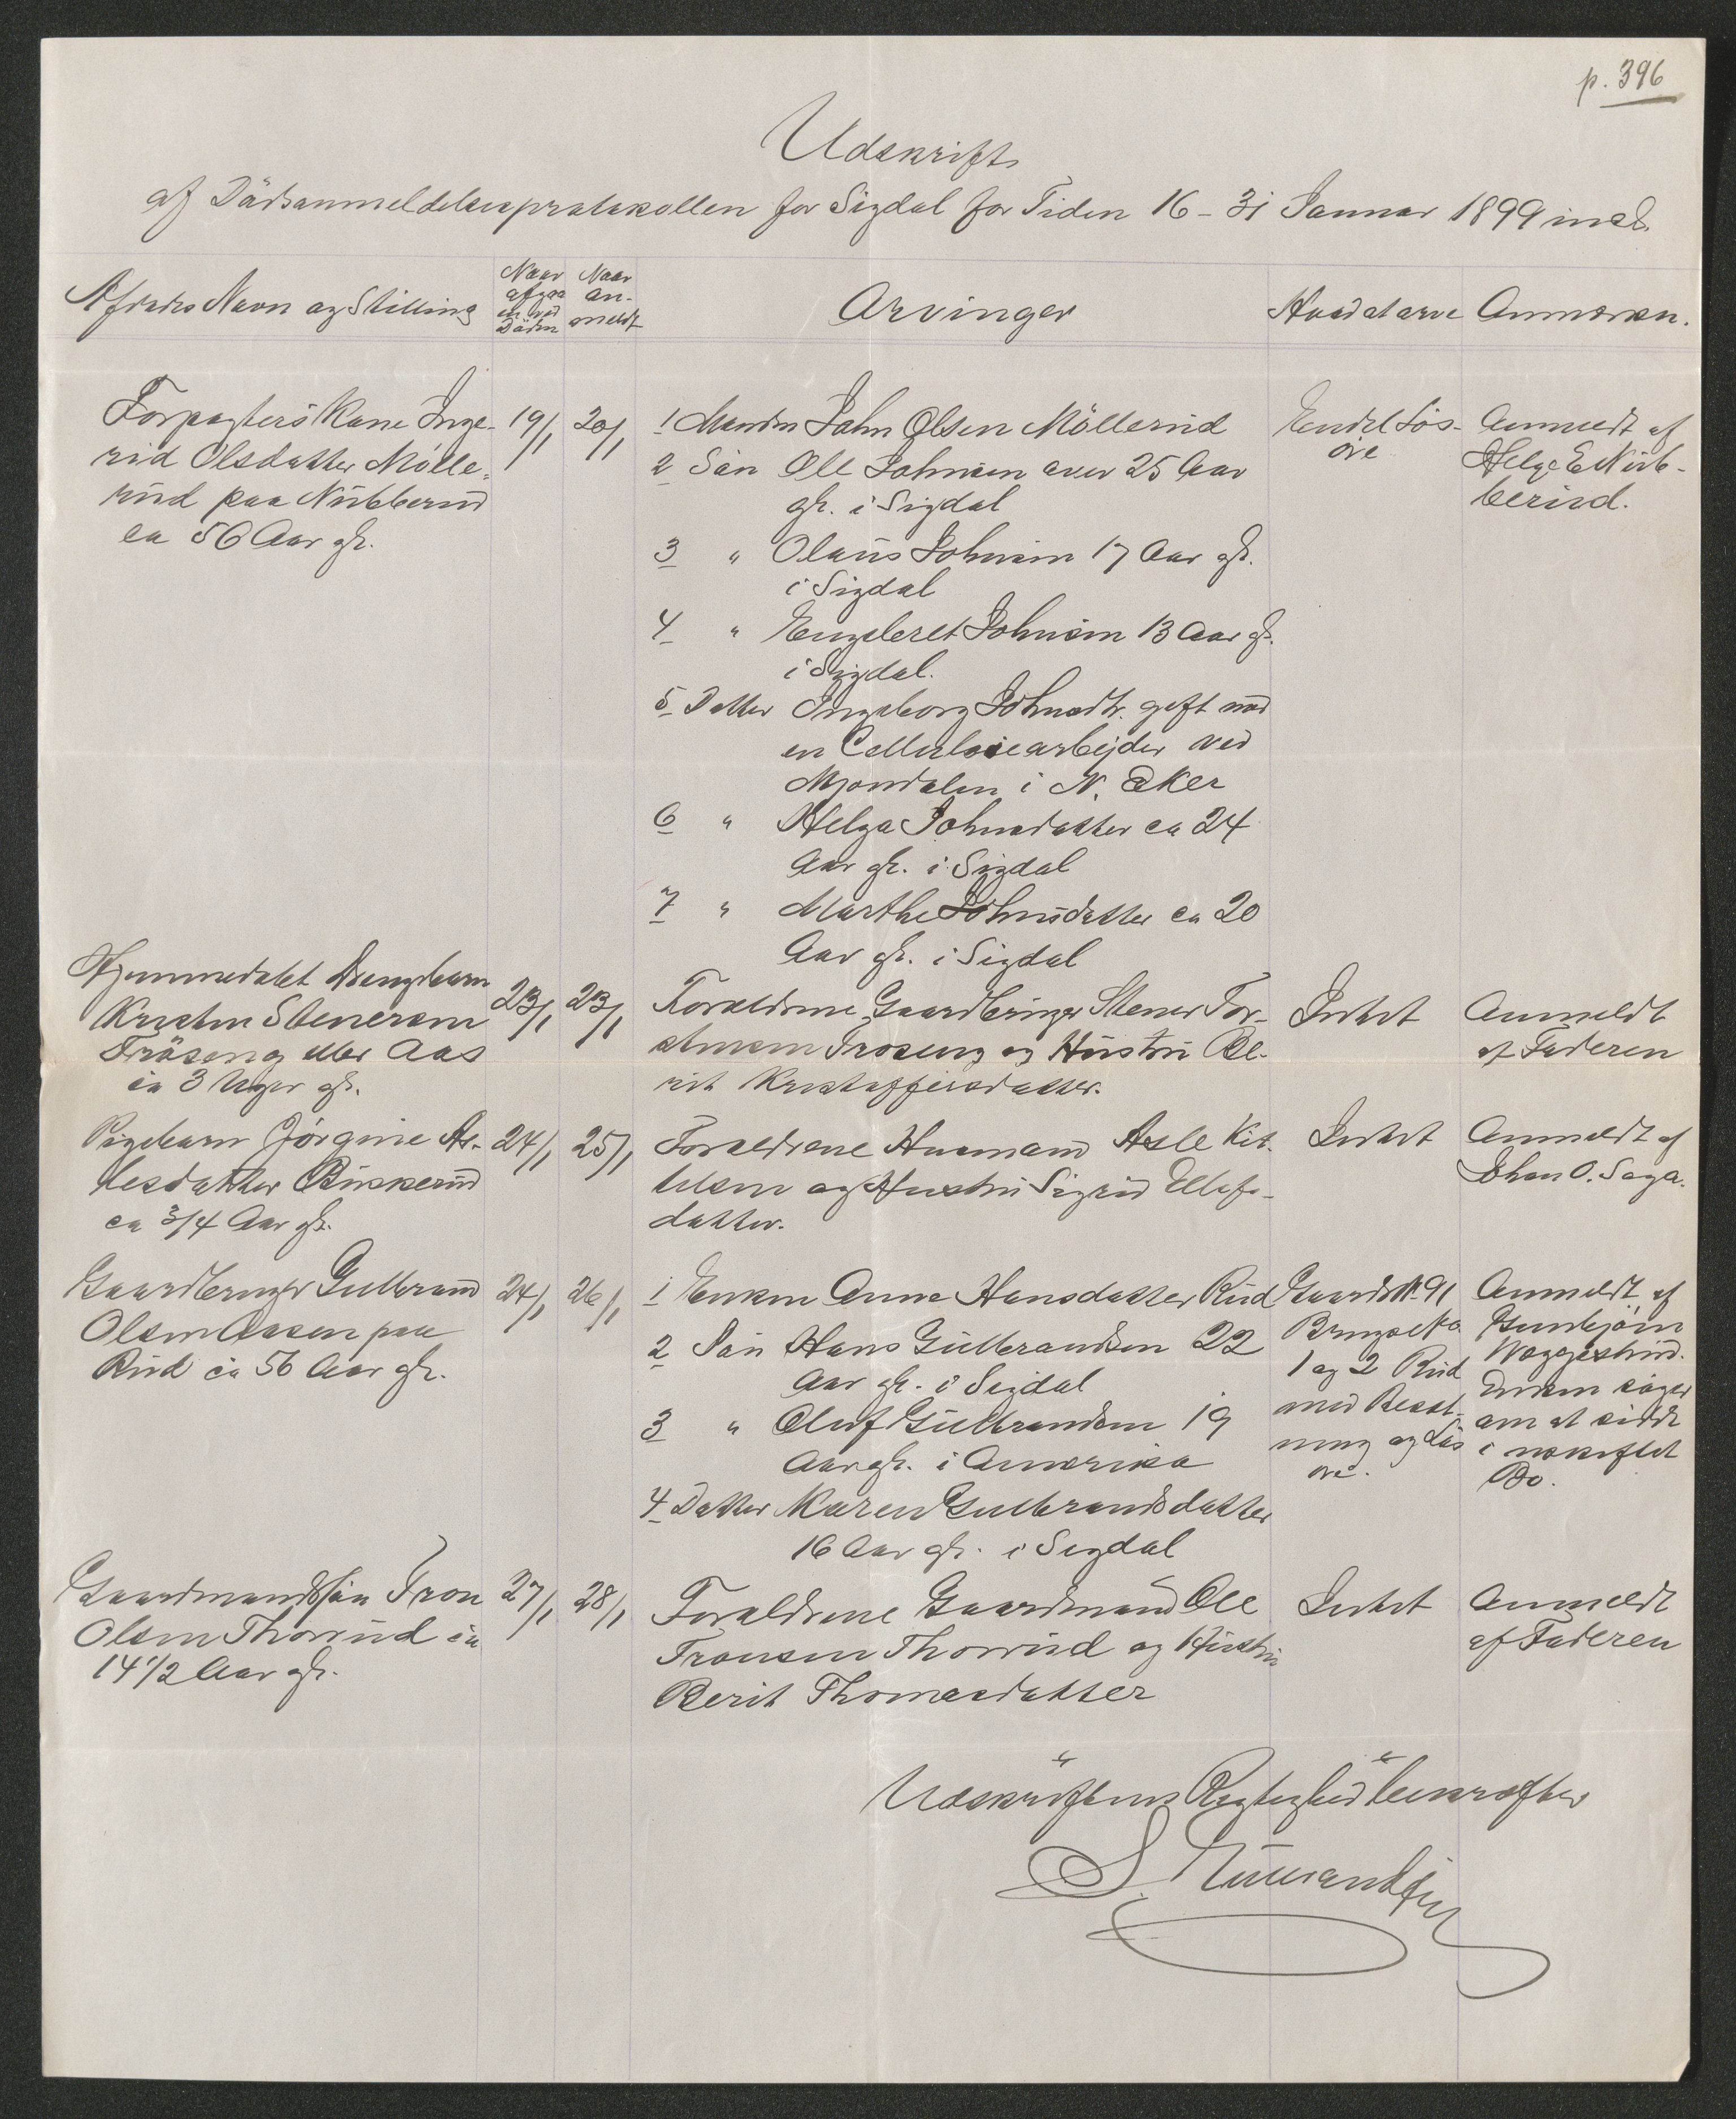 p. 396
Udskrift
af Dödsanmeldelsesprotokollen for Sigdal for Tiden 16 - 31 Januar 1899 incl.
Afdödes Navn og Stilling
Naar afgaaen ved Döden
Naar anmeldt
Arvinger
Hvad at arve
Anmærkn.
Forpagterskone Inge-
rid Olsdatter Mölle-
rud paa Nubberud
ca 56 Aar gl.
19/1
20/1
1 Manden John Olsen Möllerud
2 Sön Ole Johnsen over 25 Aar
gl. i Sigdal
3 " Olaus Johnsen 17 Aar gl.
i Sigdal
4 " Engebret Johnsen 13 Aar gl.
i Sigdal.
5 Datter Ingeborg Johnsdtr. gift med
en Cellulosearbejder ved
Mjöndalen i N. Eker
6 " Helga Johnsdatter ca 24
Aar gl. i Sigdal
7 " Marthe Johnsdatter ca 20
Aar gl. i Sigdal
Endel Lös-
öre
Anmeldt af
Helge E Nub-
berud.
Hjemmedöbt Drengebarn
Kristen Stenersen
Fröseng eller Aas
ca 3 Uger gl.
23/1
23/1
Forældrene Gaardbruger Stener Tor-
stensen Froseng og Hustru Be-
rit Kristoffersdatter.
Intet
Anmeldt
af Faderen
Pigebarn Jörgine As-
lesdatter Buskerud
ca 3/4 Aar gl.
24/1
25/1
Forældrene Husmand Asle Kit-
telsen og Hustru Sigrid Ellefs-
datter.
Intet
Anmeldt af
Johan O. Saga.
Gaardbruger Gulbrand
Olsen Aasen paa
Rud ca 56 Aar gl.
24/1
26/1
1 Enken Anne Hansdatter Rud
2 Sön Hans Gulbrandsen 22
Aar gl. i Sigdal
3 " Oluf Gulbrandsen 19
Aar gl. i Amerika
4 Datter Karen Gulbrandsdatter
16 Aar gl. i Sigdal
Gaards No 91
Brugs No
1 og 2 Rud
med Besæt-
ning og Lös
öre.
Anmeldt af
Gunbjörn
Enken söger
om at sidde
i uskiftet
Bo.
Gaardmandssön Tron
Olsen Thorrud ca
14 1/2 Aar gl.
27/1
28/1
Forældrene Gaardmand Ole
Tronsen Thorrud og Hustru
Berit Thomasdatter
Intet
Anmeldt
af Faderen
Udskriftens Rigtighed bekræfter
S. Gulbrandsen